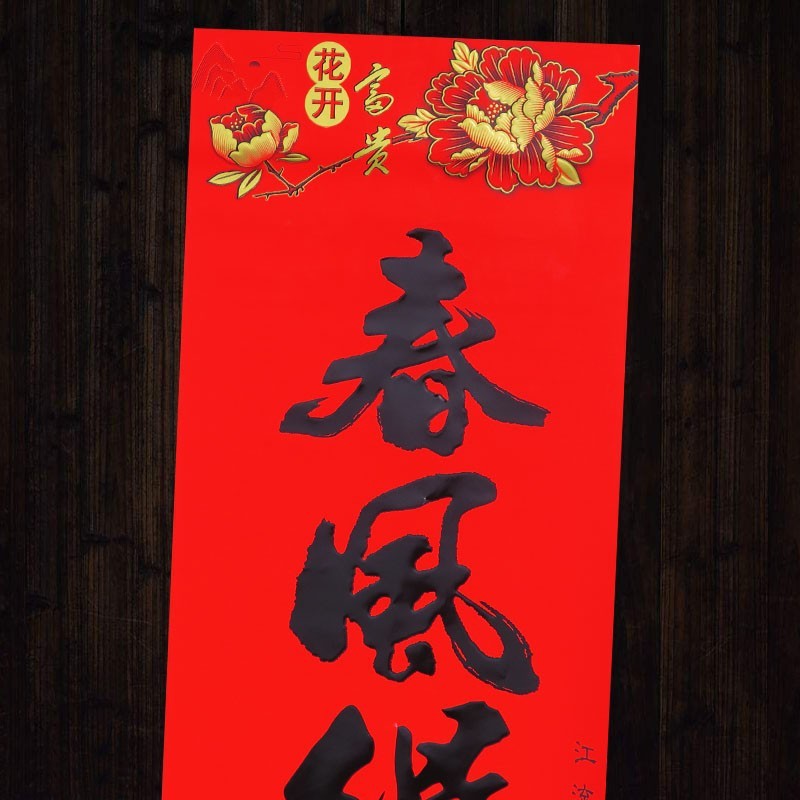 花开
富贵
春风
江